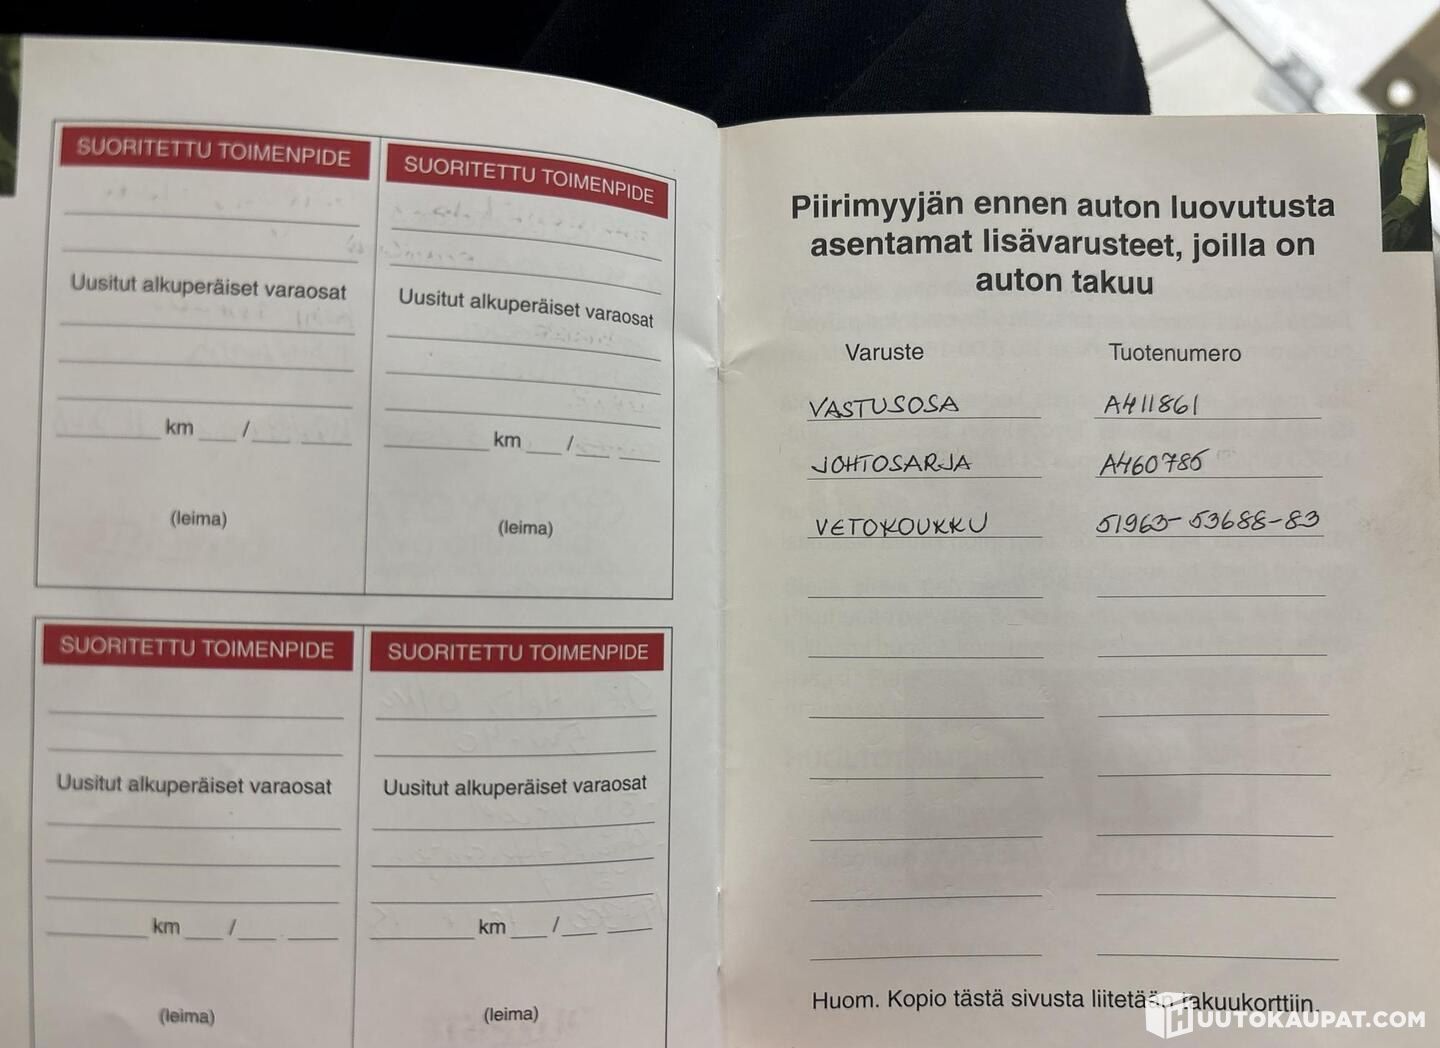 SUORITETTU TOIMENPIDE
Uusitut alkuperäiset varaosat
km / 
(leima)
SUORITETTU TOIMENPIDE
Uusitut alkuperäiset varaosat
km /
(leima)
SUORITETTU TOIMENPIDE
Uusitut alkuperäiset varaosat
km /
(leima)
SUORITETTU TOIMENPIDE
Uusitut alkuperäiset varaosat
km /
(leima)
Piirimyyjän ennen auton luovutusta
asentamat lisävarusteet, joilla on
auton takuu
Varuste Tuotenumero
VASTUSOSA A411861
JOHTOSARJA A460785
VETOKOUKKU 51963-53688-83
Huom. Kopio tästä sivusta liitetään takuukorttiin.
HUUTOKAUPAT.COM